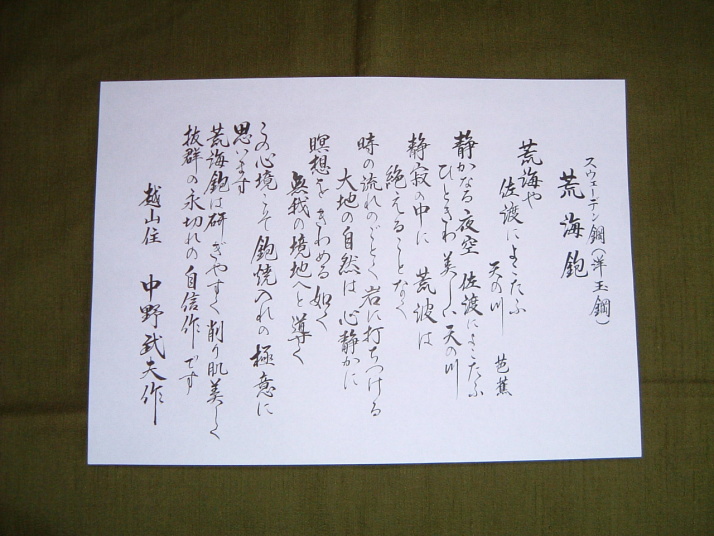 スウェーデン鋼(洋玉鋼)
荒海鉋
荒海や
佐渡によこたふ
天の川 芭蕉
静かなる夜空 佐渡によこたふ
ひときわ美しい天の川
静寂の中に 荒波は
絶えることなく
時の流れのごとく岩に打ちつける
大地の自然は 心静かに
瞑想をきわめる如く
無我の境地へと導く
この心境こそ 鉋焼入れの 極意に
思います
荒海鉋は研ぎやすく 削り肌美しく
抜群の永切れの自信作です
越山住 中野武夫作